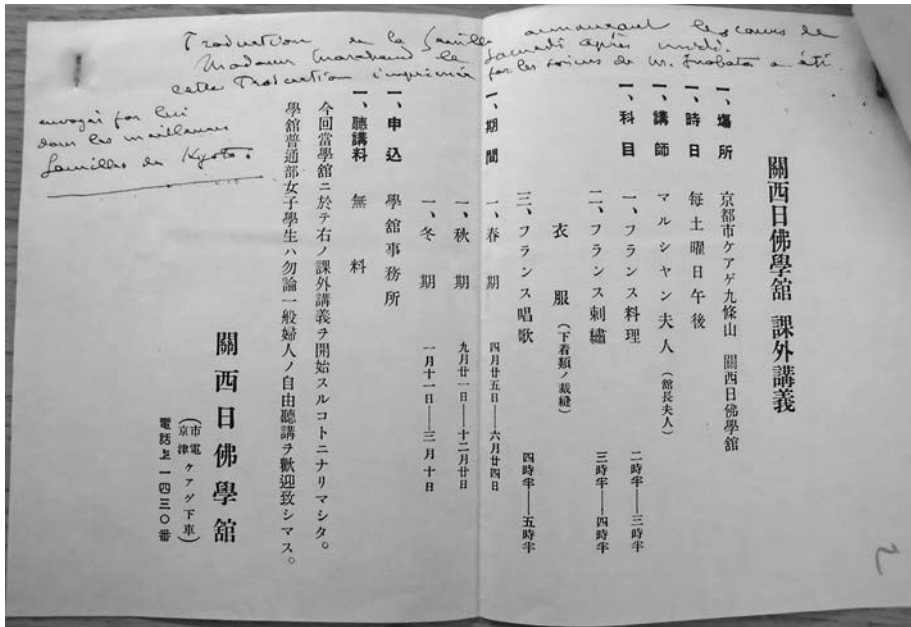 Traduction de la feuille annonçant les cours de
Madame Marchand le Samedi après midi.
cette Traduction imprimée par les soins de M. Inabata a été
envoyée par lui
dans les meilleures
familles de Kyoto.
關西日佛學館 課外講義
一、場所 京都市ケアゲ九條山 關西日佛學館
一、時日 每土曜日午後
一、講師 マルシャン夫人(館長夫人)
一、科目 一、フランス料理 二時半——三時半
二、フランス刺繡 三時半——四時半
衣服(下着類ノ裁縫)
三、フランス唱歌 四時半——五時半
一、期間 一、春期 四月廿五日——六月廿四日
一、秋期 九月廿一日——十二月廿日
一、冬期 一月十一日——三月十日
一、申込 學館事務所
一、聽講料 無料
今回當學館ニ於テ右ノ課外講義ヲ開始スルコトニナリマシタ。
學館普通部女子學生ハ勿論一般婦人ノ自由聽講ヲ歡迎致シマス。
關西日佛學館
(市電 京津 ケアゲ下車)
電話上一四三〇番
2